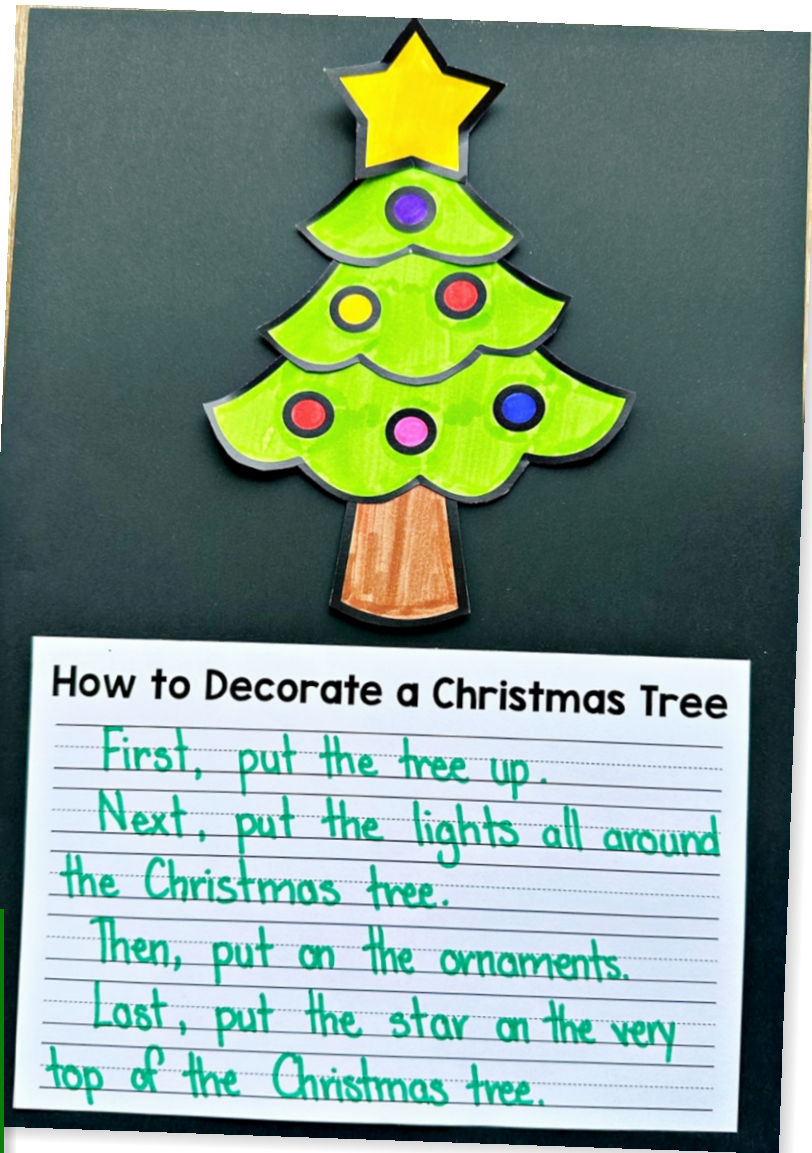 How to Decorate a Christmas Tree
First, put the tree up.
Next, put the lights all around
the Christmas tree.
Then, put on the ornaments.
Last, put the star on the very
top of the Christmas tree.